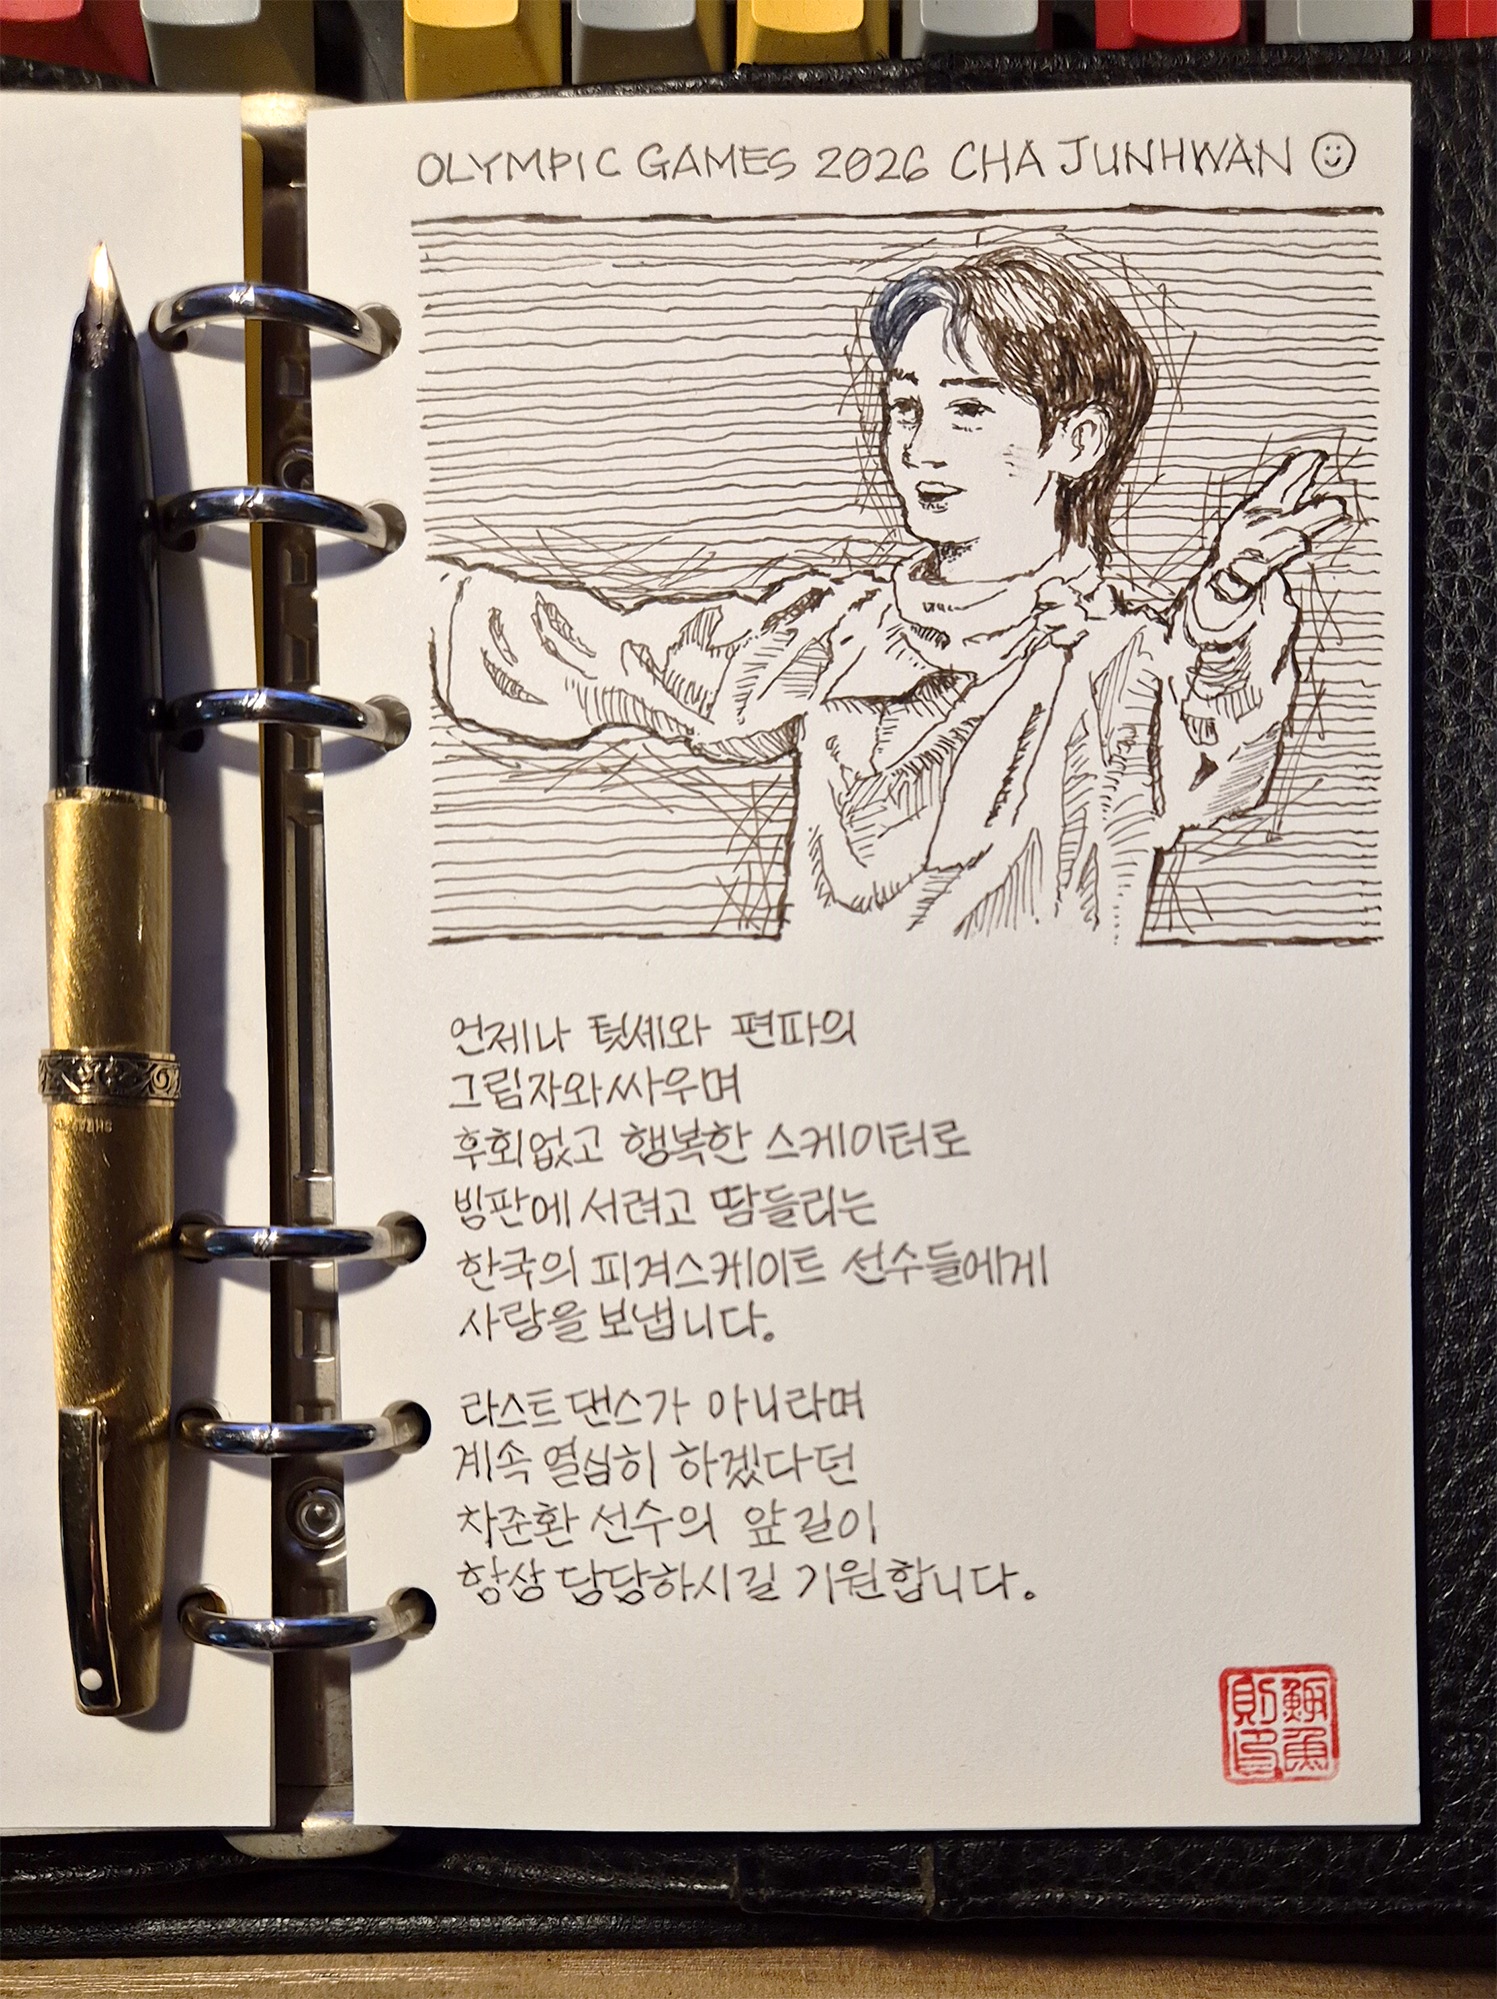 OLYMPIC GAMES 2026 CHA JUNHWAN
언제나 텃세와 편파의
그림자와 싸우며
후회없고 행복한 스케이터로
빙판에 서려고 땀들리는
한국의 피겨스케이트 선수들에게
사랑을 보냅니다.
라스트 댄스가 아니라며
계속 열심히 하겠다던
차준환 선수의 앞길이
항상 담담하시길 기원합니다.